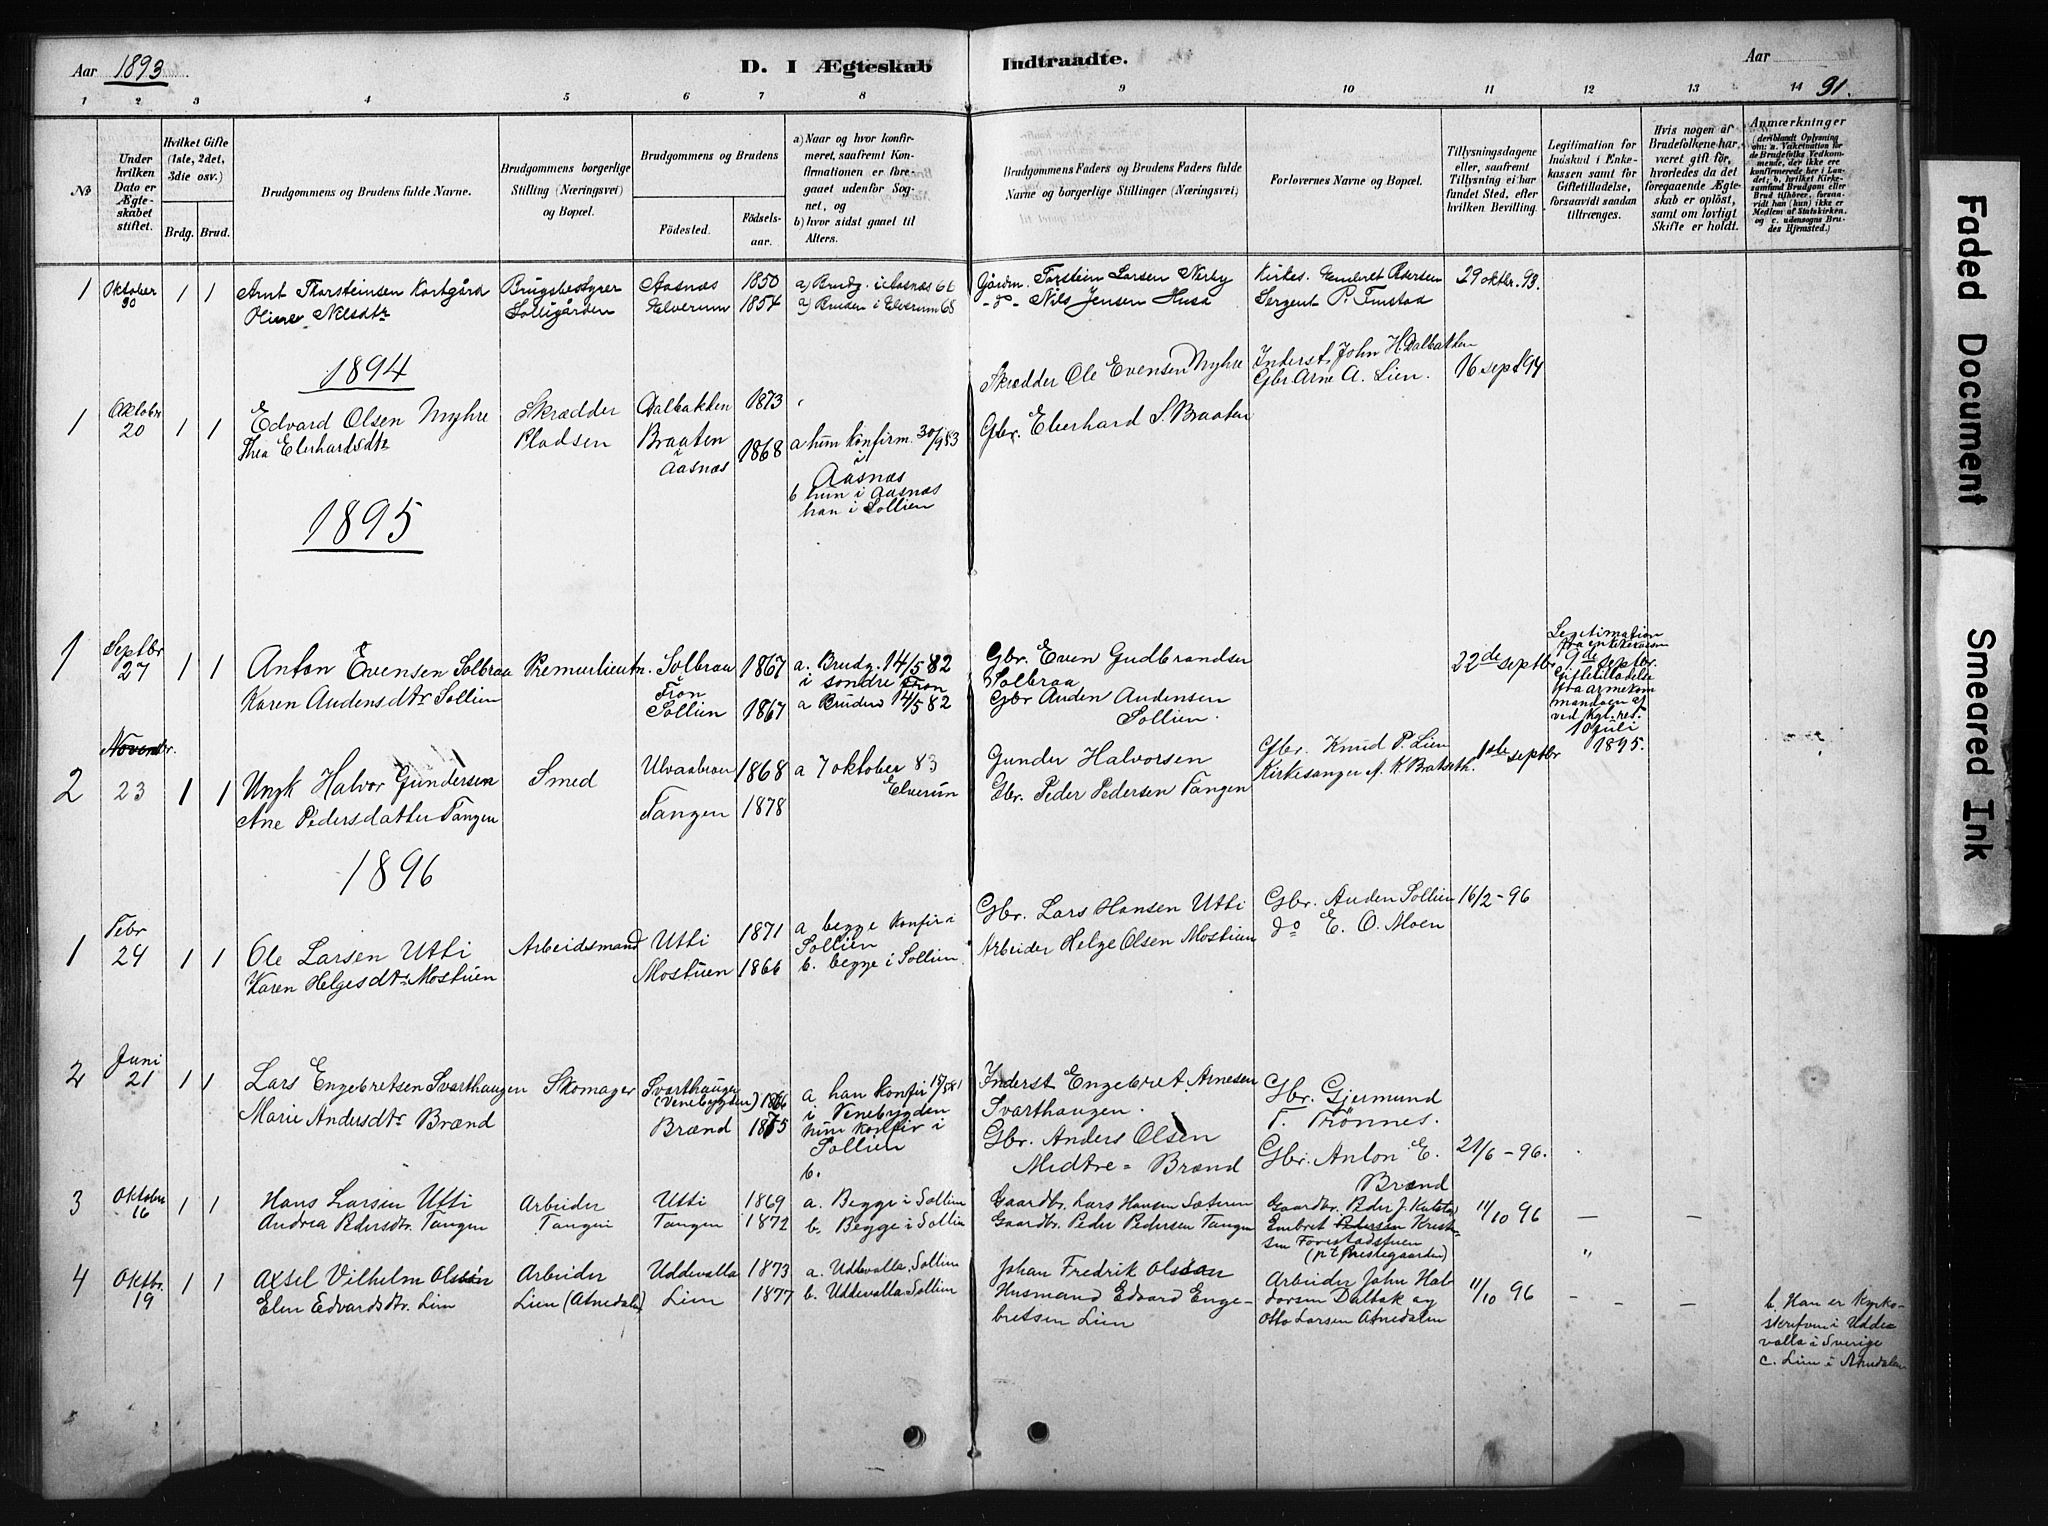 Aar 1893
D. I Ægteskab Indtraadte.
Aar
91.
1 2 3 4 5 6 7 8 9 10 11 12 13 14
No
Under hvilken Dato er Ægteskabet stiftet.
Hvilket Gifte (1ste, 2det, 3die osv.)
Brdg. Brud.
Brudgommens og Brudens fulde Navne.
Brudgommens borgerlige Stilling (Næringsvei) og Bopæl.
Brudgommens og Brudens
Fødested.
Fødselsaar.
a) Naar og hvor konfirmeret, saafremt Konfirmationen er foregaaet udenfor Sognet, og
b) hvor sidst gaaet til Alters.
Brudgommens Faders og Brudens Faders fulde Navne og borgerlige Stillinger (Næringsvei)
Forlovernes Navne og Bopæl.
Tillysningsdagene eller, saafremt Tillysning ei har fundet Sted, efter hvilken Bevilling.
Legitimation for Indskud i Enkekassen samt for Giftetilladelse, forsaavidt saadan tiltrænges.
Hvis nogen af Brudefolkene har været gift før, hvorledes da det foregaaende Ægteskab er opløst, samt om lovligt Skifte er holdt.
Anmærkninger
1 Oktober 30 1 1
Arnt Thorsteinsen Kortgård
Oline Nilsdtr
Brugsbestyrer
Solligården
Aasnæs 1850
Elverum 1854
a) Brudg. i Aasnæs 66
a) Bruden i Elverum 68
Gårdm. Torstein Larsen Nerby
-d- Nils Jensen Husa
Kirkes. Embret Pedersen
Sergent P. Finstad
29 oktbr. 93.
1894
1 Oktobr 20 1 1
Edvard Olsen Myhre
Thea Eberhardsdtr
Skrædder
Pladsen
Dalbakken 1873
Braaten i Aasnæs 1868
a hun konfirm. 30/9 83
i Aasnæs
b hun i Aasnæs
han i Sollien
Skrædder Ole Evensen Myhre
Gbr. Eberhard S. Braaten
Inderst John H. Dalbakken
Gbr Arne A. Lien.
16 sept 94
1895
1 Septbr 27 1 1
Anton Evensen Solbraa
Karen Audensdtr Sollien
Premierlieutn.
Solbraa 1867
Fron
Sollien 1867
a. Brudg. 14/5 82
i søndre Fron
a Bruden 14/5 82
Gbr. Even Gudbrandsen
Solbraa
Gbr Auden Audensen
Sollien.
22de septbr.
Legitimation
fra enkekassen
9de septbr.
Giftetilladelse
fra armekom
mandoen af
ved Kgl. res.
10 juli
1895.
2 Novembr. 23 1 1
Ungk Halvor Gundersen
Ane Pedersdatter Tangen
Smed
Ulvaabraa 1868
Tangen 1878
a 7 oktober 83
Elverum
Gunder Halvorsen
Gbr. Peder Pedersen Tangen
Gbr. Knud P. Lien
Kirkesanger A. K. Bratseth.
1ste septbr
1896
1 Febr 24 1 1
Ole Larsen Utti
Karen Helgesdtr Mostuen
Arbeidsmand
Utti 1871
Mostuen 1866
a begge konfir i
Sollien
b. begge i Sollien.
Gbr. Lars Hansen Utti
Arbeider Helge Olsen Mostuen
Gbr. Auden Sollien
do E. O. Moen
16/2 - 96
2 Juni 21 1 1
Lars Engebretsen Svarthaugen
Marie Andersdtr Brænd
Skomager
Svarthaugen
(Venebygden) 1866
Brænd 1875
a han konfir 17/5 81
i Venebygden
hun konfir i
Sollien
b.
Inderst Engebret Arnesen
Svarthaugen.
Gbr. Anders Olsen
Midtre = Brænd
Gbr. Gjermund
T. Trønnes.
Gbr. Anton E.
Brænd
21/6 - 96.
3 Oktober 16 1 1
Hans Larsen Utti
Andrea Pedersdtr. Tangen
Arbeider
Tangen
Utti 1869
Tangen 1872
a. Begge i Sollien
b. Begge i Sollien
Gaardbr. Lars Hansen Sæteren
Gaardbr. Peder Pedersen Tangen
Gaardbr. Peder J. Kutstad
Embret Pedersen Krist-
sen Forestadstuen
(p t Prestegaarden)
11/10 96
— —
4 Oktbr. 19 1 1
Axsel Vilhelm Olsson
Elen Edvardsdtr. Lien
Arbeider
Lien (Atnedalen)
Uddevalla 1873
Lien 1877
a. Uddevalla, Sollien
b. Uddevalla, Sollien
Johan Fredrik Olsson
Husmand Edvard Enge-
bretsen Lien
Arbeider John Hal-
dorsen Dalbak og
Otto Larsen Atnedalen
11/10 96
— — —
b. Han er Kyrko-
skrifven i Udde-
valla i Sverige
c. Lien i Atnedalen
Faded Document
Smeared Ink